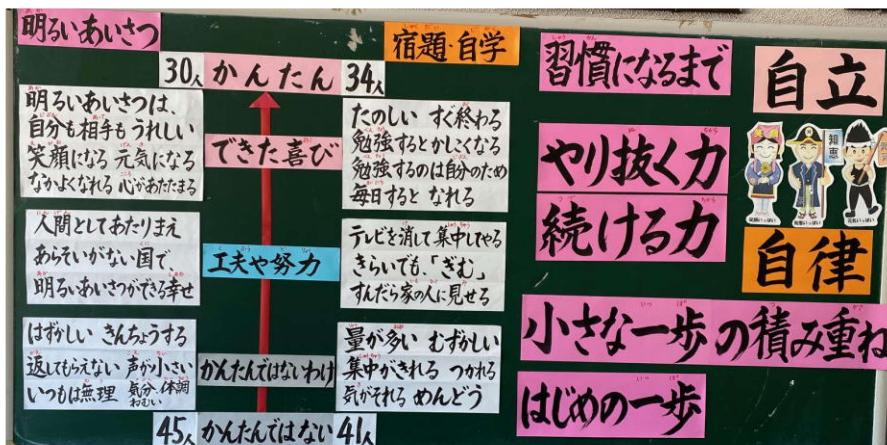 明るいあいさつ
宿題・自学
30人 かんたん 34人
明るいあいさつは、
自分も相手もうれしい
笑顔になる 元気になる
なかよくなれる 心があたたまる
できた喜び
たのしい すぐ終わる
勉強するとかしこくなる
勉強するのは自分のため
毎日すると なれる
人間としてあたりまえ
あらそいがない国で、
明るいあいさつができる幸せ
工夫や努力
テレビを消して集中してやる
きらいでも、「ぎむ」
すんだら家の人に見せる
はずかしい きんちょうする
返してもらえない 声が小さい
いつもは無理 気分・体調
ねむい
かんたんではないわけ
量が多い むずかしい
集中がきれる つかれる
気がそれる めんどう
45人 かんたんではない 41人
習慣になるまで
自立
やり抜く力
続ける力
知恵
自律
小さな一歩の積み重ね
はじめの一歩